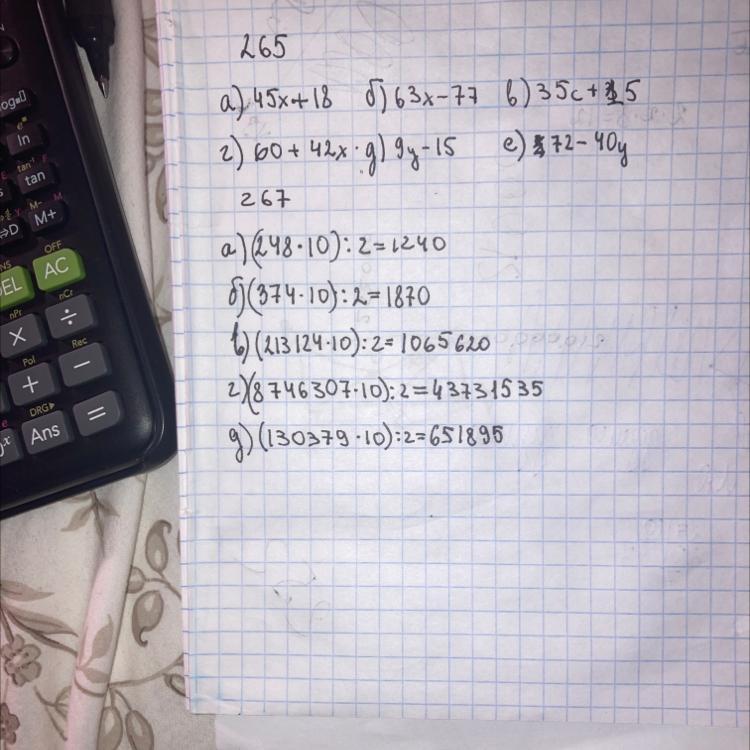 265
а) 45x+18 б) 63x-77 в) 35c+15
г) 60+42x д) 9y-15 е) 72-40y
267
а) (248·10):2=1240
б) (374·10):2=1870
в) (213124·10):2=1065620
г) (8746307·10):2=43731535
д) (130379·10):2=651895
ln
tan
M+
OFF
AC
nPr
nCr
×
÷
Pol
Rec
+
−
DRG▸
Ans
=